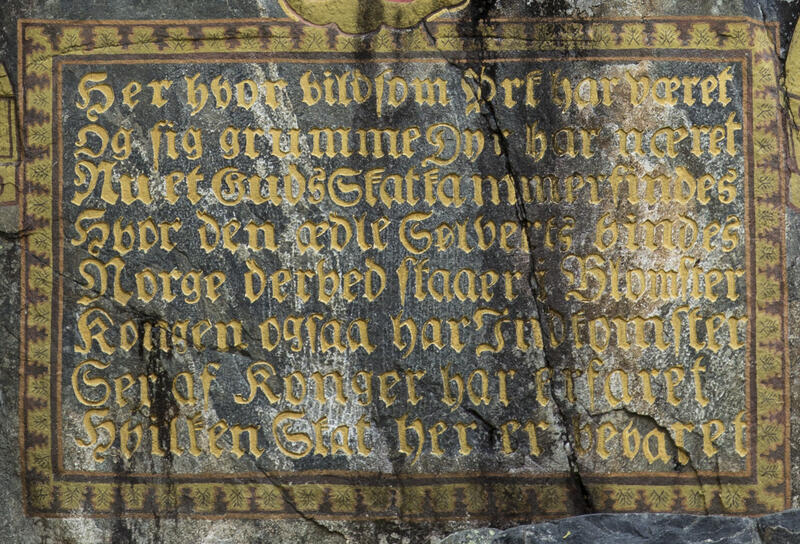 Her hvor vildsom Ørk har været
Og sig grumme Dyr har næret
Nu et Guds Skatkammer findes
Hvor den ædle Sølverts vindes
Norge derved staaer i Blomster
Kongen ogsaa har Indkomster
Ser af Konger har erfaret
Hvilken Skat her er bevaret